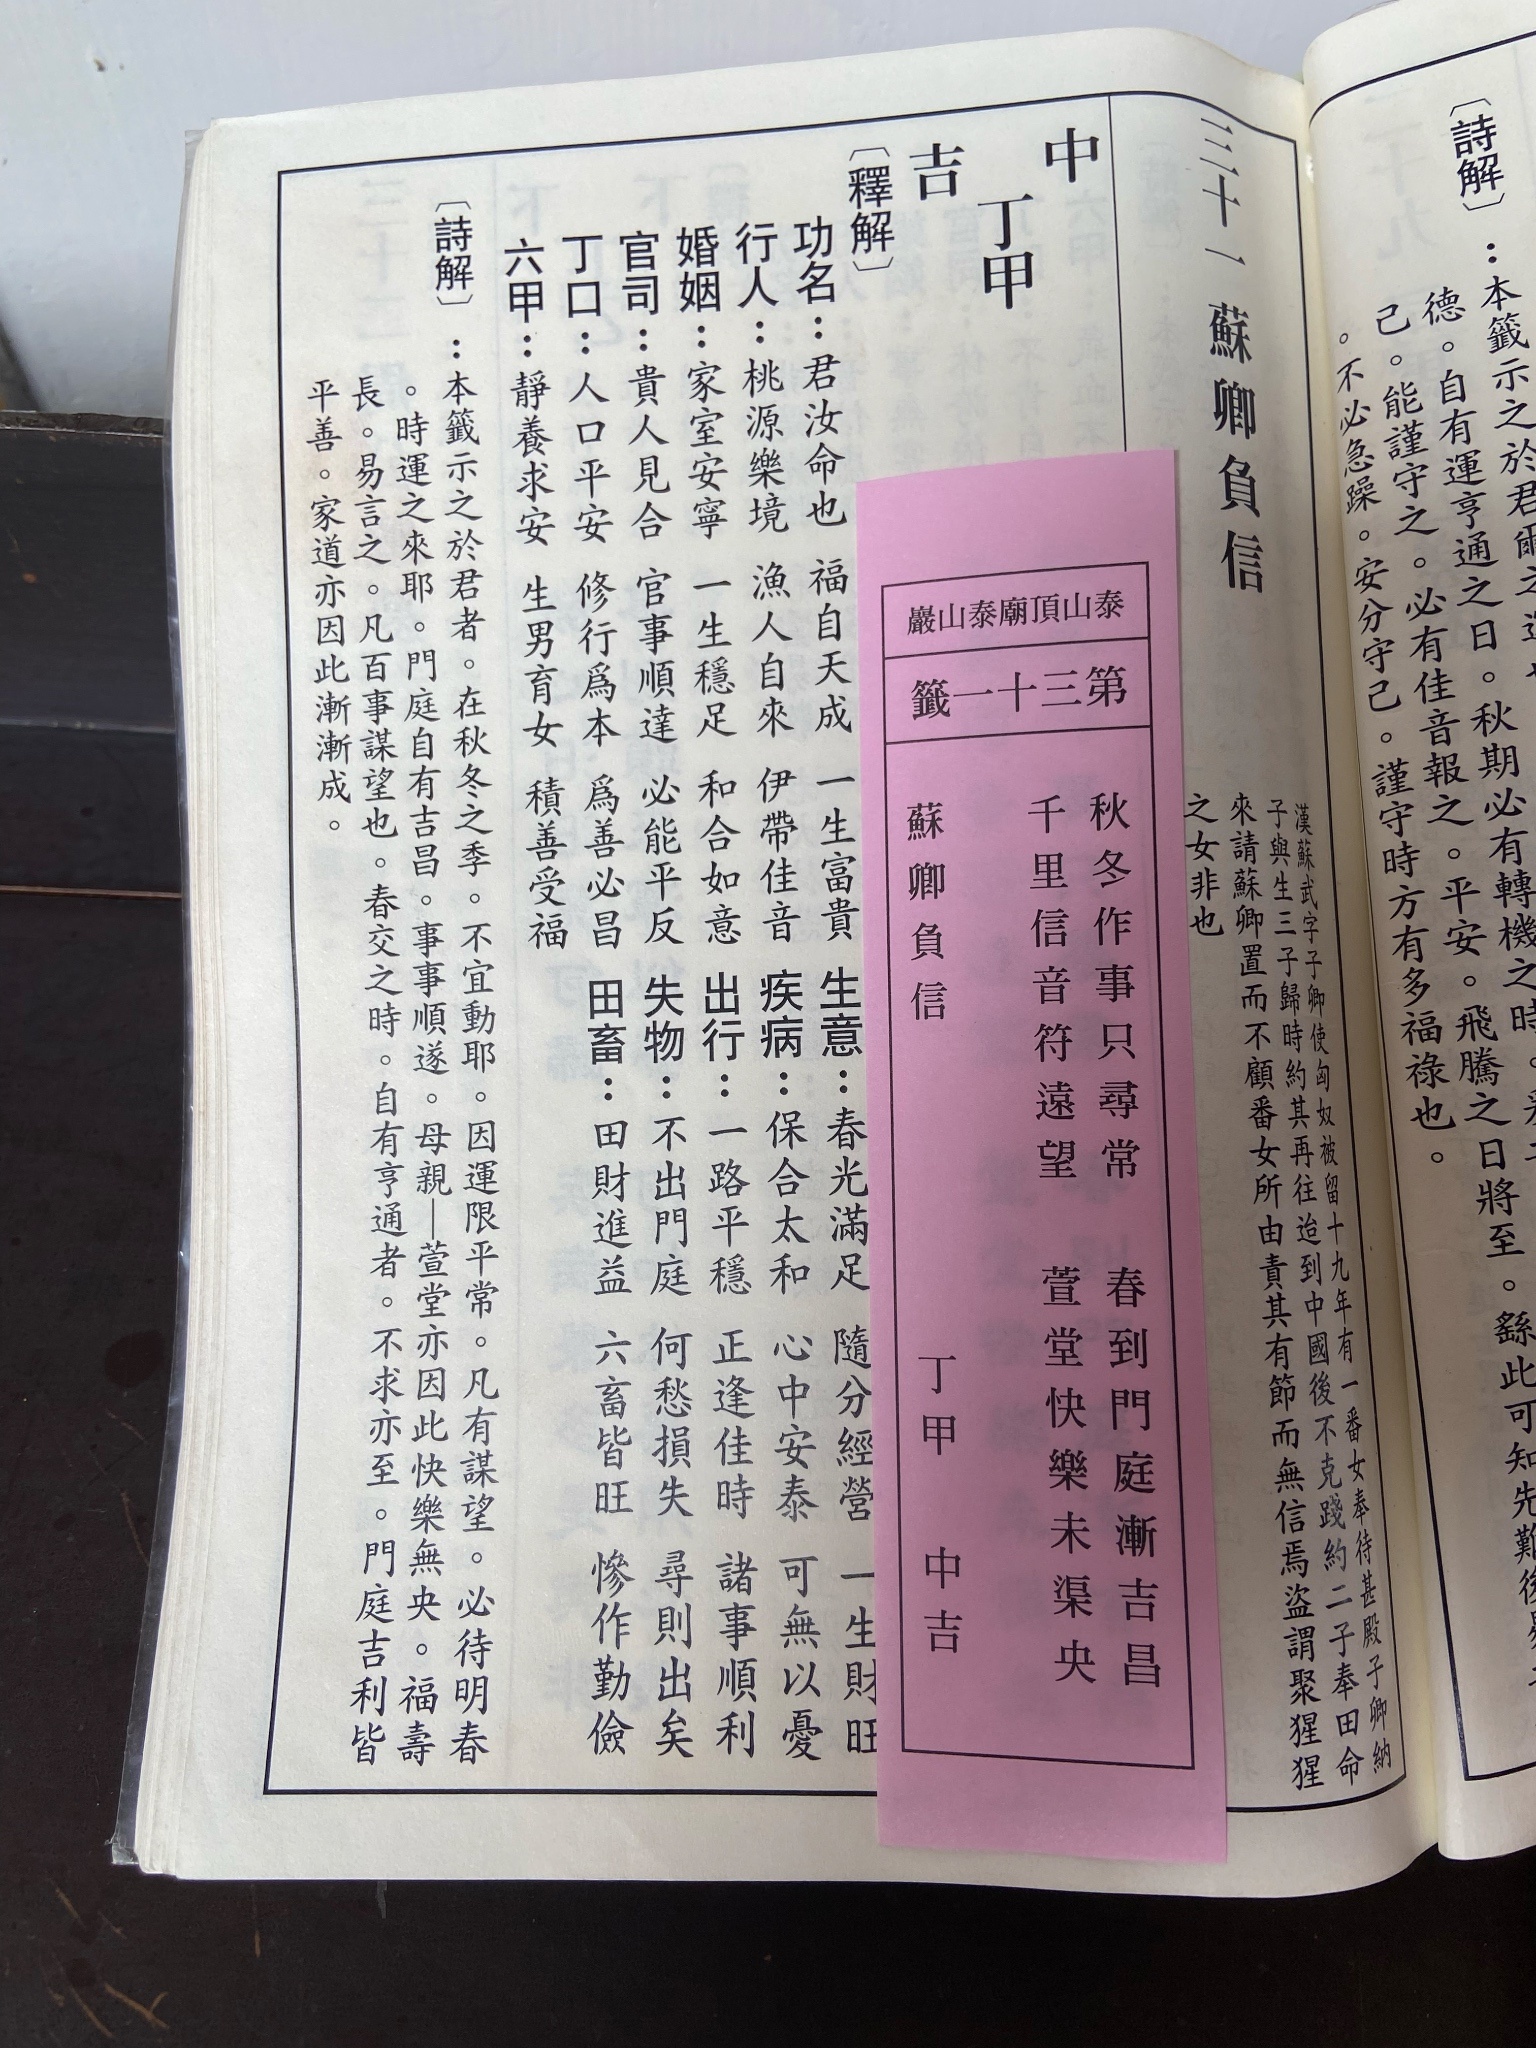 〔詩解〕：本籤示之於君爾之運
德。自有運亨通之日。秋期必有轉機之時。
己。能謹守之。必有佳音報之。平安。飛騰之日將至。繇此可知先難後
。不必急躁。安分守己。謹守時方有多福祿也。
三十一 蘇卿負信
漢蘇武字子卿使匈奴被留十九年有一番女奉待甚殷子卿納
子與生三子歸時約其再往迨到中國後不克踐約二子奉田命
來請蘇卿置而不顧番女所由責其有節而無信焉盜謂聚猩猩
之女非也
中
丁甲
吉
泰山頂廟泰山巖
第三十一籤
秋冬作事只尋常 春到門庭漸吉昌
千里信音符遠望 萱堂快樂未渠央
蘇卿負信 丁甲 中吉
〔釋解〕
功名：君汝命也 福自天成 一生富貴 生意：春光滿足 隨分經營 一生財旺
行人：桃源樂境 漁人自來 伊帶佳音 疾病：保合太和 心中安泰 可無以憂
婚姻：家室安寧 一生穩足 和合如意 出行：一路平穩 正逢佳時 諸事順利
官司：貴人見合 官事順達 必能平反 失物：不出門庭 何愁損失 尋則出矣
丁口：人口平安 修行爲本 爲善必昌 田畜：田財進益 六畜皆旺 慘作勤儉
六甲：靜養求安 生男育女 積善受福
〔詩解〕：本籤示之於君者。在秋冬之季。不宜動耶。因運限平常。凡有謀望。必待明春
。時運之來耶。門庭自有吉昌。事事順遂。母親—萱堂亦因此快樂無央。福壽
長。易言之。凡百事謀望也。春交之時。自有亨通者。不求亦至。門庭吉利皆
平善。家道亦因此漸漸成。